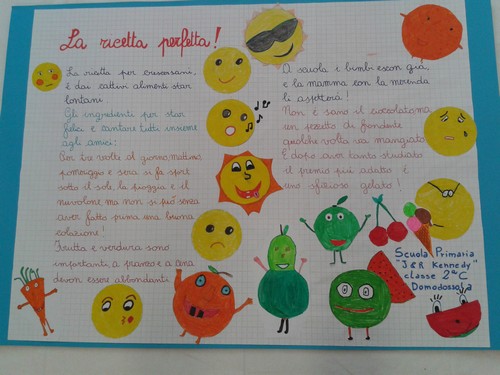 La ricetta perfetta!
La ricetta per crescer sani,
è dai cattivi alimenti star
lontani.
Gli ingredienti per star
felici e cantare tutti insieme
agli amici:
Per tre volte al giorno, mattina,
pomeriggio e sera si fa sport
sotto il sole, la pioggia e il
nuvolone ma non si può senza
aver fatto prima una buona
colazione!
Frutta e verdura sono
importanti, a pranzo e a cena
devon essere abbondanti.
A scuola i bimbi escon già,
e la mamma con la merenda
li aspetterà!
Non è sano il cioccolatone
un pezzetto di fondente
qualche volta va mangiato.
E dopo aver tanto studiato
il premio più adatto è
uno sfizioso gelato!
Scuola Primaria
"J&R Kennedy"
classe 2ªC
Domodossola